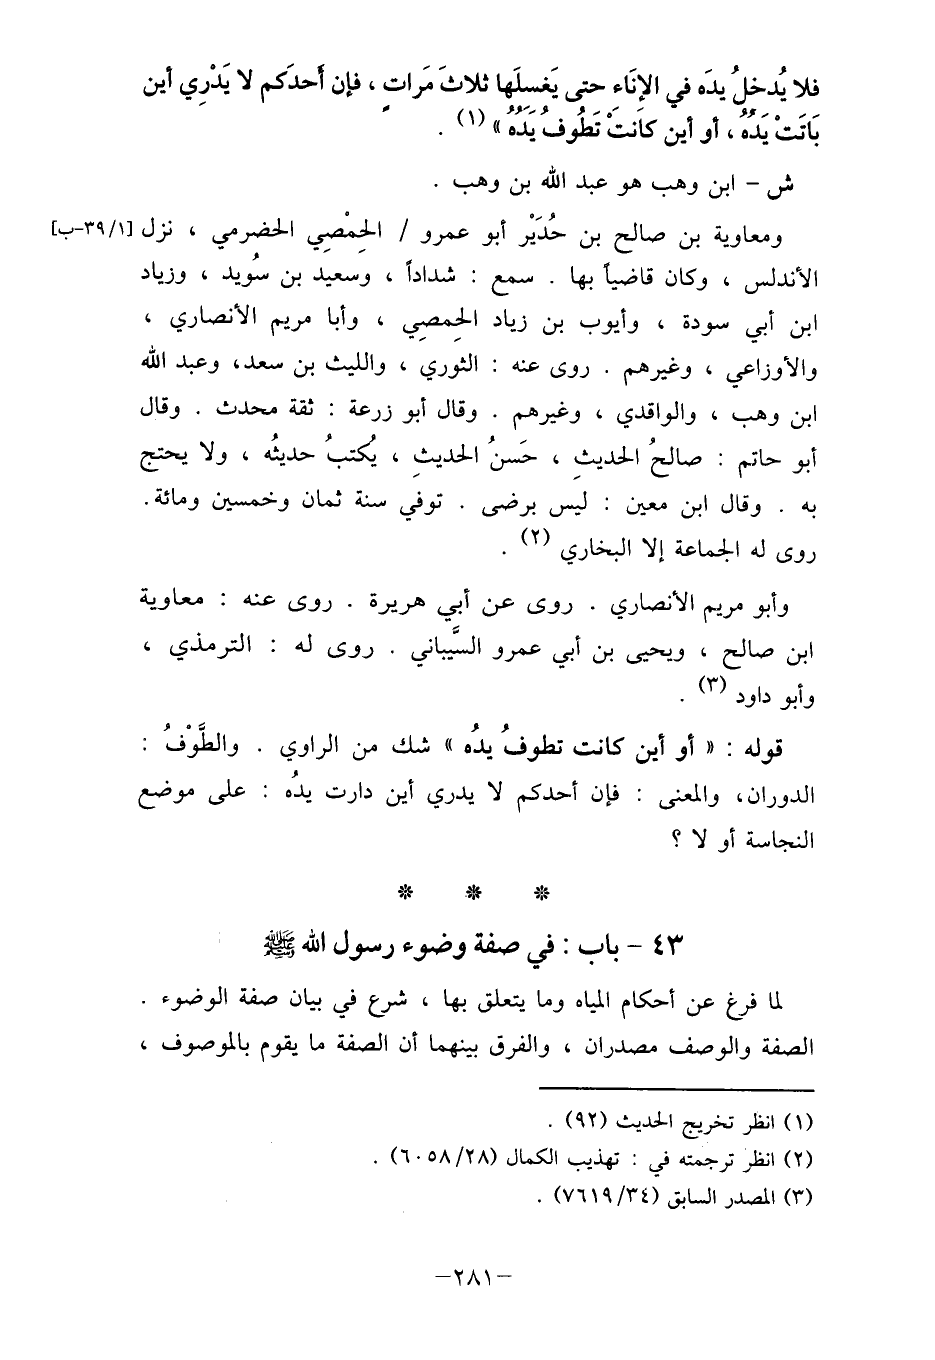 فلا يُدخلُ يدَه في الإنَاء حتى يَغسلَها ثلاثَ مَرات ، فإن أَحدَكم لا يَدْرِي أين
بَاتَتْ يَدُهُ ، أو أين كَانتْ تَطُوفُ يَدُهُ » (١) .
ش – ابن وهب هو عبد الله بن وهب .
ومعاوية بن صالح بن حُدَيْر أبو عمرو / الحِمْصِي الحضرمي ، نزل [٣٩/١-ب]
الأندلس ، وكان قاضياً بها . سمع : شداداً ، وسعيد بن سُويد ، وزياد
ابن أبي سودة ، وأيوب بن زياد الحِمصِي ، وأبا مريم الأنصاري ،
والأوزاعي ، وغيرهم . روى عنه : الثوري ، والليث بن سعد، وعبد الله
ابن وهب ، والواقدي ، وغيرهم . وقال أبو زرعة : ثقة محدث . وقال
أبو حاتم : صالحُ الحديثِ ، حَسنُ الحديثِ ، يُكتبُ حديثُه ، ولا يحتج
به . وقال ابن معين : ليس برضى . توفي سنة ثمان وخمسين ومائة.
روى له الجماعة إلا البخاري (٢) .
وأبو مريم الأنصاري . روى عن أبي هريرة . روى عنه : معاوية
ابن صالح ، ويحيى بن أبي عمرو السَّيباني . روى له : الترمذي ،
وأبو داود (٣) .
قوله : « أو أين كانت تطوفُ يدُه » شك من الراوي . والطَّوْفُ :
الدوران، والمعنى : فإن أحدكم لا يدري أين دارت يدُه : على موضع
النجاسة أو لا ؟
* * *
٤٣ – باب : في صفة وضوء رسول الله ﷺ
لما فرغ عن أحكام المياه وما يتعلق بها ، شرع في بيان صفة الوضوء .
الصفة والوصف مصدران ، والفرق بينهما أن الصفة ما يقوم بالموصوف ،
(١) انظر تخريج الحديث (٩٢) .
(٢) انظر ترجمته في : تهذيب الكمال (٦٠٥٨/٢٨) .
(٣) المصدر السابق (٧٦١٩/٣٤) .
–٢٨١–